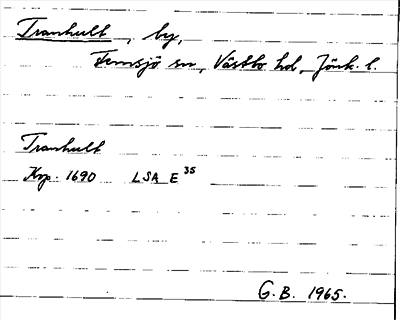 Tranhult, by,
Femsjö sn, Västbo hd, Jönk. l.
Tranhult
Krp. 1690 LSA E 35
G.B. 1965.